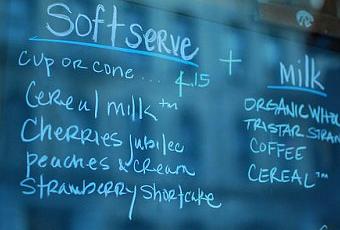 Softserve
cup or cone... 4.15
Cereal milk™
Cherries jubilee
peaches & cream
Strawberry Shortcake
+
Milk
ORGANIC WHOL
TRISTAR STRAW
COFFEE
CEREAL™